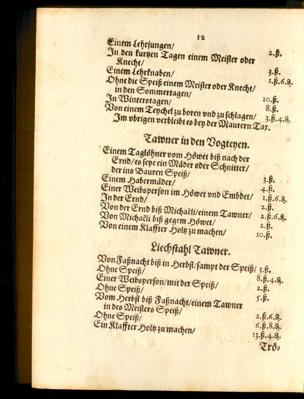 12
Einem Lehrjungen/ 2.ß.
In den kurtzen Tagen einem Meister oder
Knecht/ 3.ß.
Einem Lehrknaben/ 1.ß.6.₰.
Ohne die Speiß einem Meister oder Knecht/
in den Sommertagen/ 10.ß.
In Winterstagen/ 8.ß.
Von einem Teychel zu boren vnd zu schlagen/ 3.ß.4.₰.
Im vbrigen verbleibt es bey der Maurern Tax.
Tawner in den Vogteyen.
Einem Taglöhner vom Höwet biß nach der
Ernd/es seye ein Mäder oder Schnitter/
der ins Bauren Speiß/ 3.ß.
Einem Habermäder/ 4.ß.
Einer Weibsperson im Höwet vnd Embdet/ 1.ß.6.₰.
In der Ernd/ 2.ß.
Von der Ernd biß Michaëli/einem Tawner/ 2.ß.6.₰.
Von Michaëli biß gegem Höwet/ 2.ß.
Von einem Klaffter Holtz zu machen/ 10.ß.
Liechstahl Tawner.
Von Faßnacht biß in Herbst/sampt der Speiß/ 3.ß.
Ohne Speiß/ 8.ß.4.₰.
Einer Weibsperson/mit der Speiß/ 2.ß.
Ohne Speiß/ 5.ß.
Vom Herbst biß Faßnacht/einem Tawner
in des Meisters Speiß/ 2.ß.6.₰.
Ohne Speiß/ 6.ß.8.₰.
Ein Klaffter Holtz zu machen/ 13.ß.4.₰.
Trö-